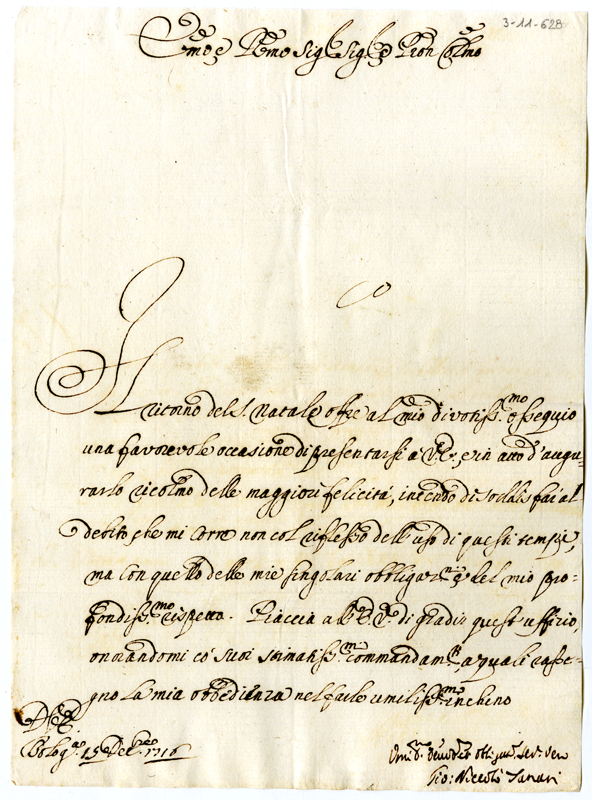 3-11-628
Emo e Rmo Sig.e Sig.e e Pron Colmo
Il ritorno del S. Natale offre al mio divotiss.mo ossequio
una favorevole occasione di presentarsi a V.E., e in atto d'augu-
rarlo ricolmo delle maggiori felicità, intendo di sodisfar al
debito, che mi corre non col riflesso dell'uso di questi tempi,
ma con quello delle mie singolari obbligaz.ni e del mio pro-
fondiss.mo rispetto. Piaccia all'E.V. di gradir quest'uffizio,
onorandomi co' suoi stimatiss.mi commandam.ti, a quali rasse-
gno la mia obbedienza nel farle umiliss.mo inchino
D V E
Bolog.a 15 Dec.bre 1716
Um.o devot.o obbligat. ser. vero
Gio: Niccolò Tanari